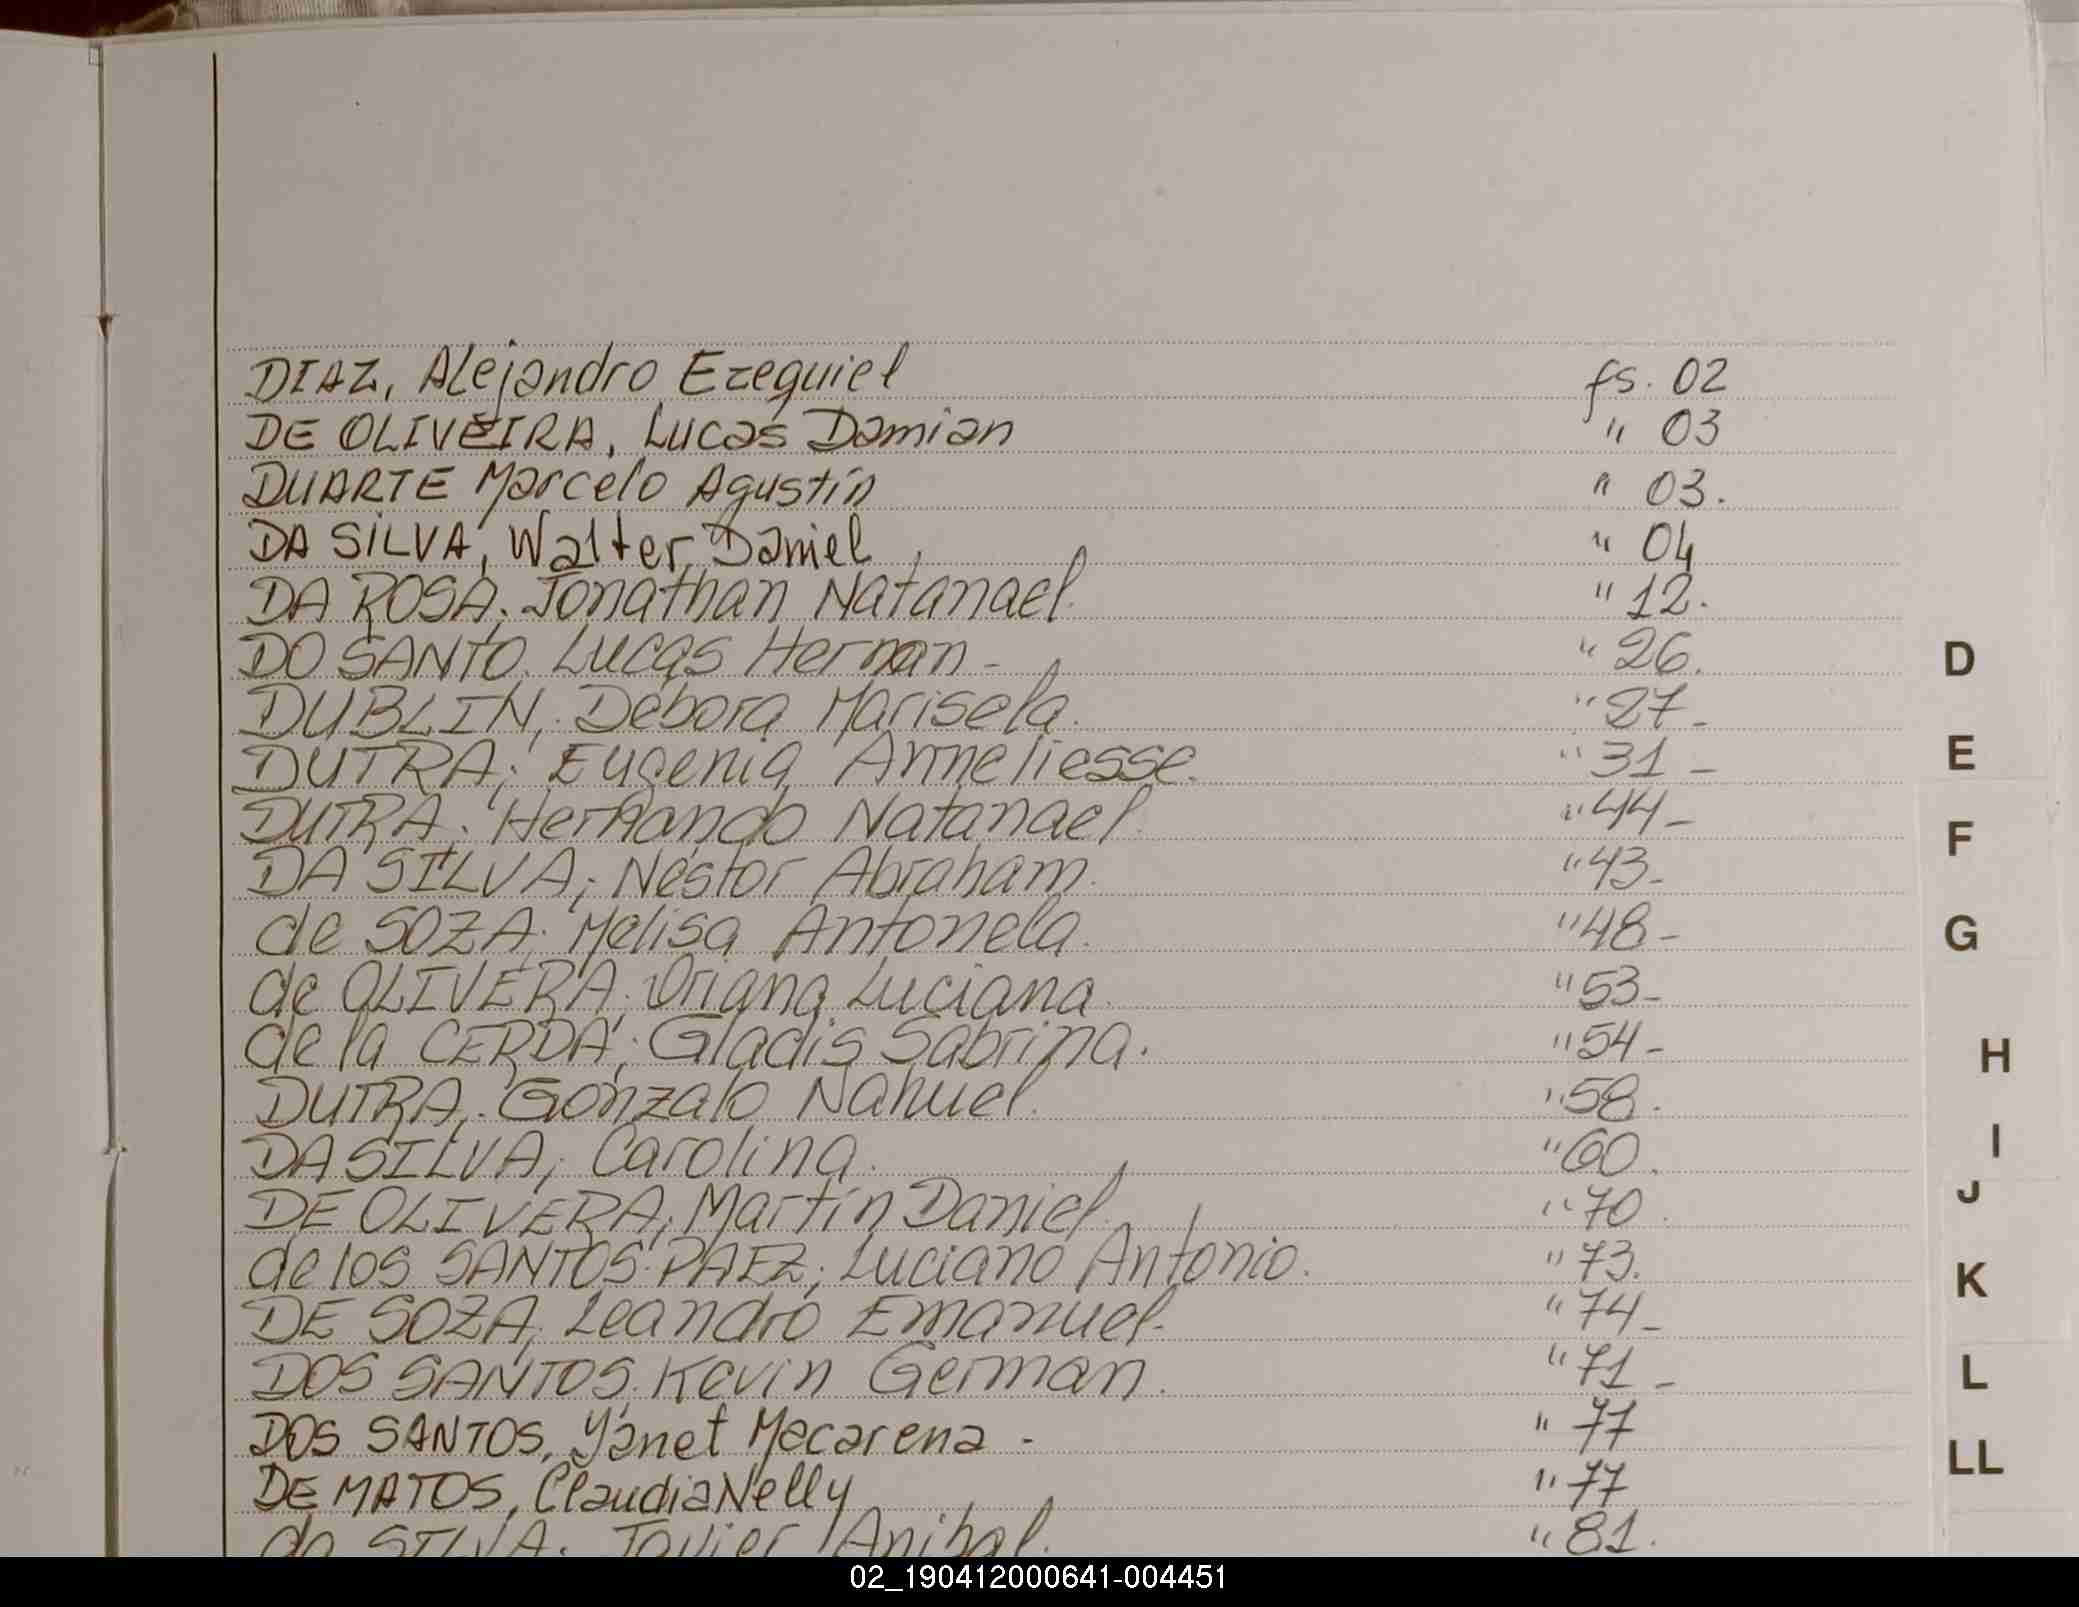 DIAZ, Alejandro Ezequiel fs. 02
DE OLIVEIRA, Lucas Damian " 03
DUARTE Marcelo Agustín " 03.
DA SILVA, Walter Daniel " 04
DA ROSA, Jonathan Natanael. " 12.
DO SANTO, Lucas Hernan - " 26.
D
DUBLIN, Débora Marisela. " 27-
DUTRA; Eugenia Anneliesse. " 31 -
E
DUTRA; Hernando Natanael. " 44-
F
DA SILVA; Néstor Abraham. " 43-
de SOZA; Melisa Antonela. " 48-
G
de OLIVERA; Oriana Luciana. " 53-
de la CERDA; Gladis Sabrina. " 54-
H
DUTRA; Gonzalo Nahuel. " 58.
DA SILVA; Carolina. " 60.
I
DE OLIVERA; Martín Daniel. " 70.
J
de los SANTOS PAEZ; Luciano Antonio. " 73.
K
DE SOZA; Leandro Emanuel. " 74-
DOS SANTOS; Kevin German. " 71-
L
DOS SANTOS, Yanet Macarena - " 77
LL
DE MATOS, Claudia Nelly " 77
da SILVA; Javier Anibal. " 81.
02_190412000641-004451